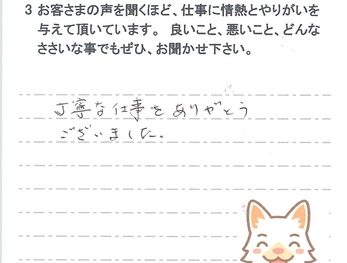 3 お客さまの声を聞くほど、仕事に情熱とやりがいを
与えて頂いています。良いこと、悪いこと、どんな
ささいな事でもぜひ、お聞かせ下さい。
丁寧な仕事をありがとう
ございました。